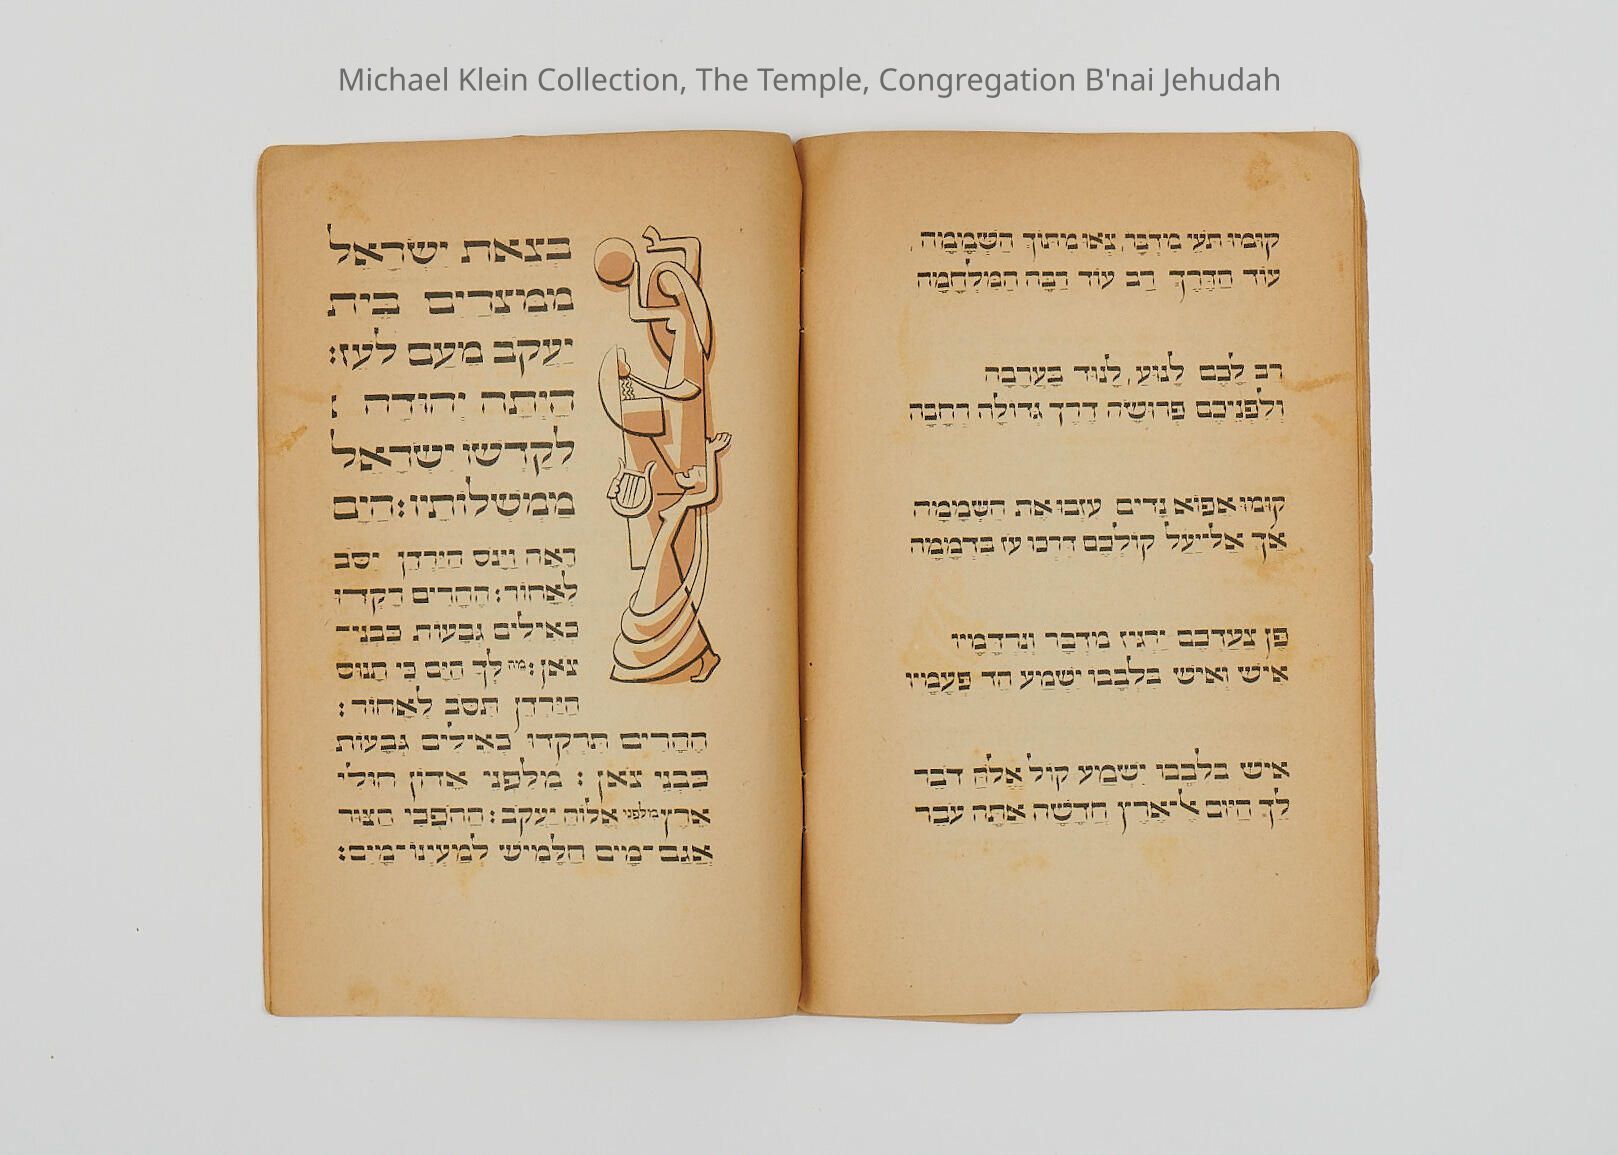 Michael Klein Collection, The Temple, Congregation B'nai Jehudah
קומו תעי מדבר, צאו מתוך השממה,
עוד הדרך רב עוד רבה המלחמה
רב לכם לנוע, לנוד בערבה
ולפניכם פרושה דרך גדולה רחבה
קומו אפוא נדים עזבו את השממה
אך אל־יעל קולכם דרכו עז בדממה
פן צעדכם ירגיז מדבר ונרדמיו
איש ואיש בלבבו ישמע הד פעמיו
איש בלבבו ישמע קול אלה דבר
לך היום אל־ארץ חדשה אתה עבר
בצאת ישראל
ממצרים בית
יעקב מעם לעז:
היתה יהודה
לקדשו ישראל
ממשלותיו: הים
ראה וינס הירדן יסב
לאחור: ההרים רקדו
כאילים גבעות כבני־
צאן: מה לך הים כי תנוס
הירדן תסב לאחור:
ההרים תרקדו כאילים גבעות
כבני צאן: מלפני אדון חולי
ארץ מלפני אלוה יעקב: ההפכי הצור
אגם־מים חלמיש למעינו־מים: